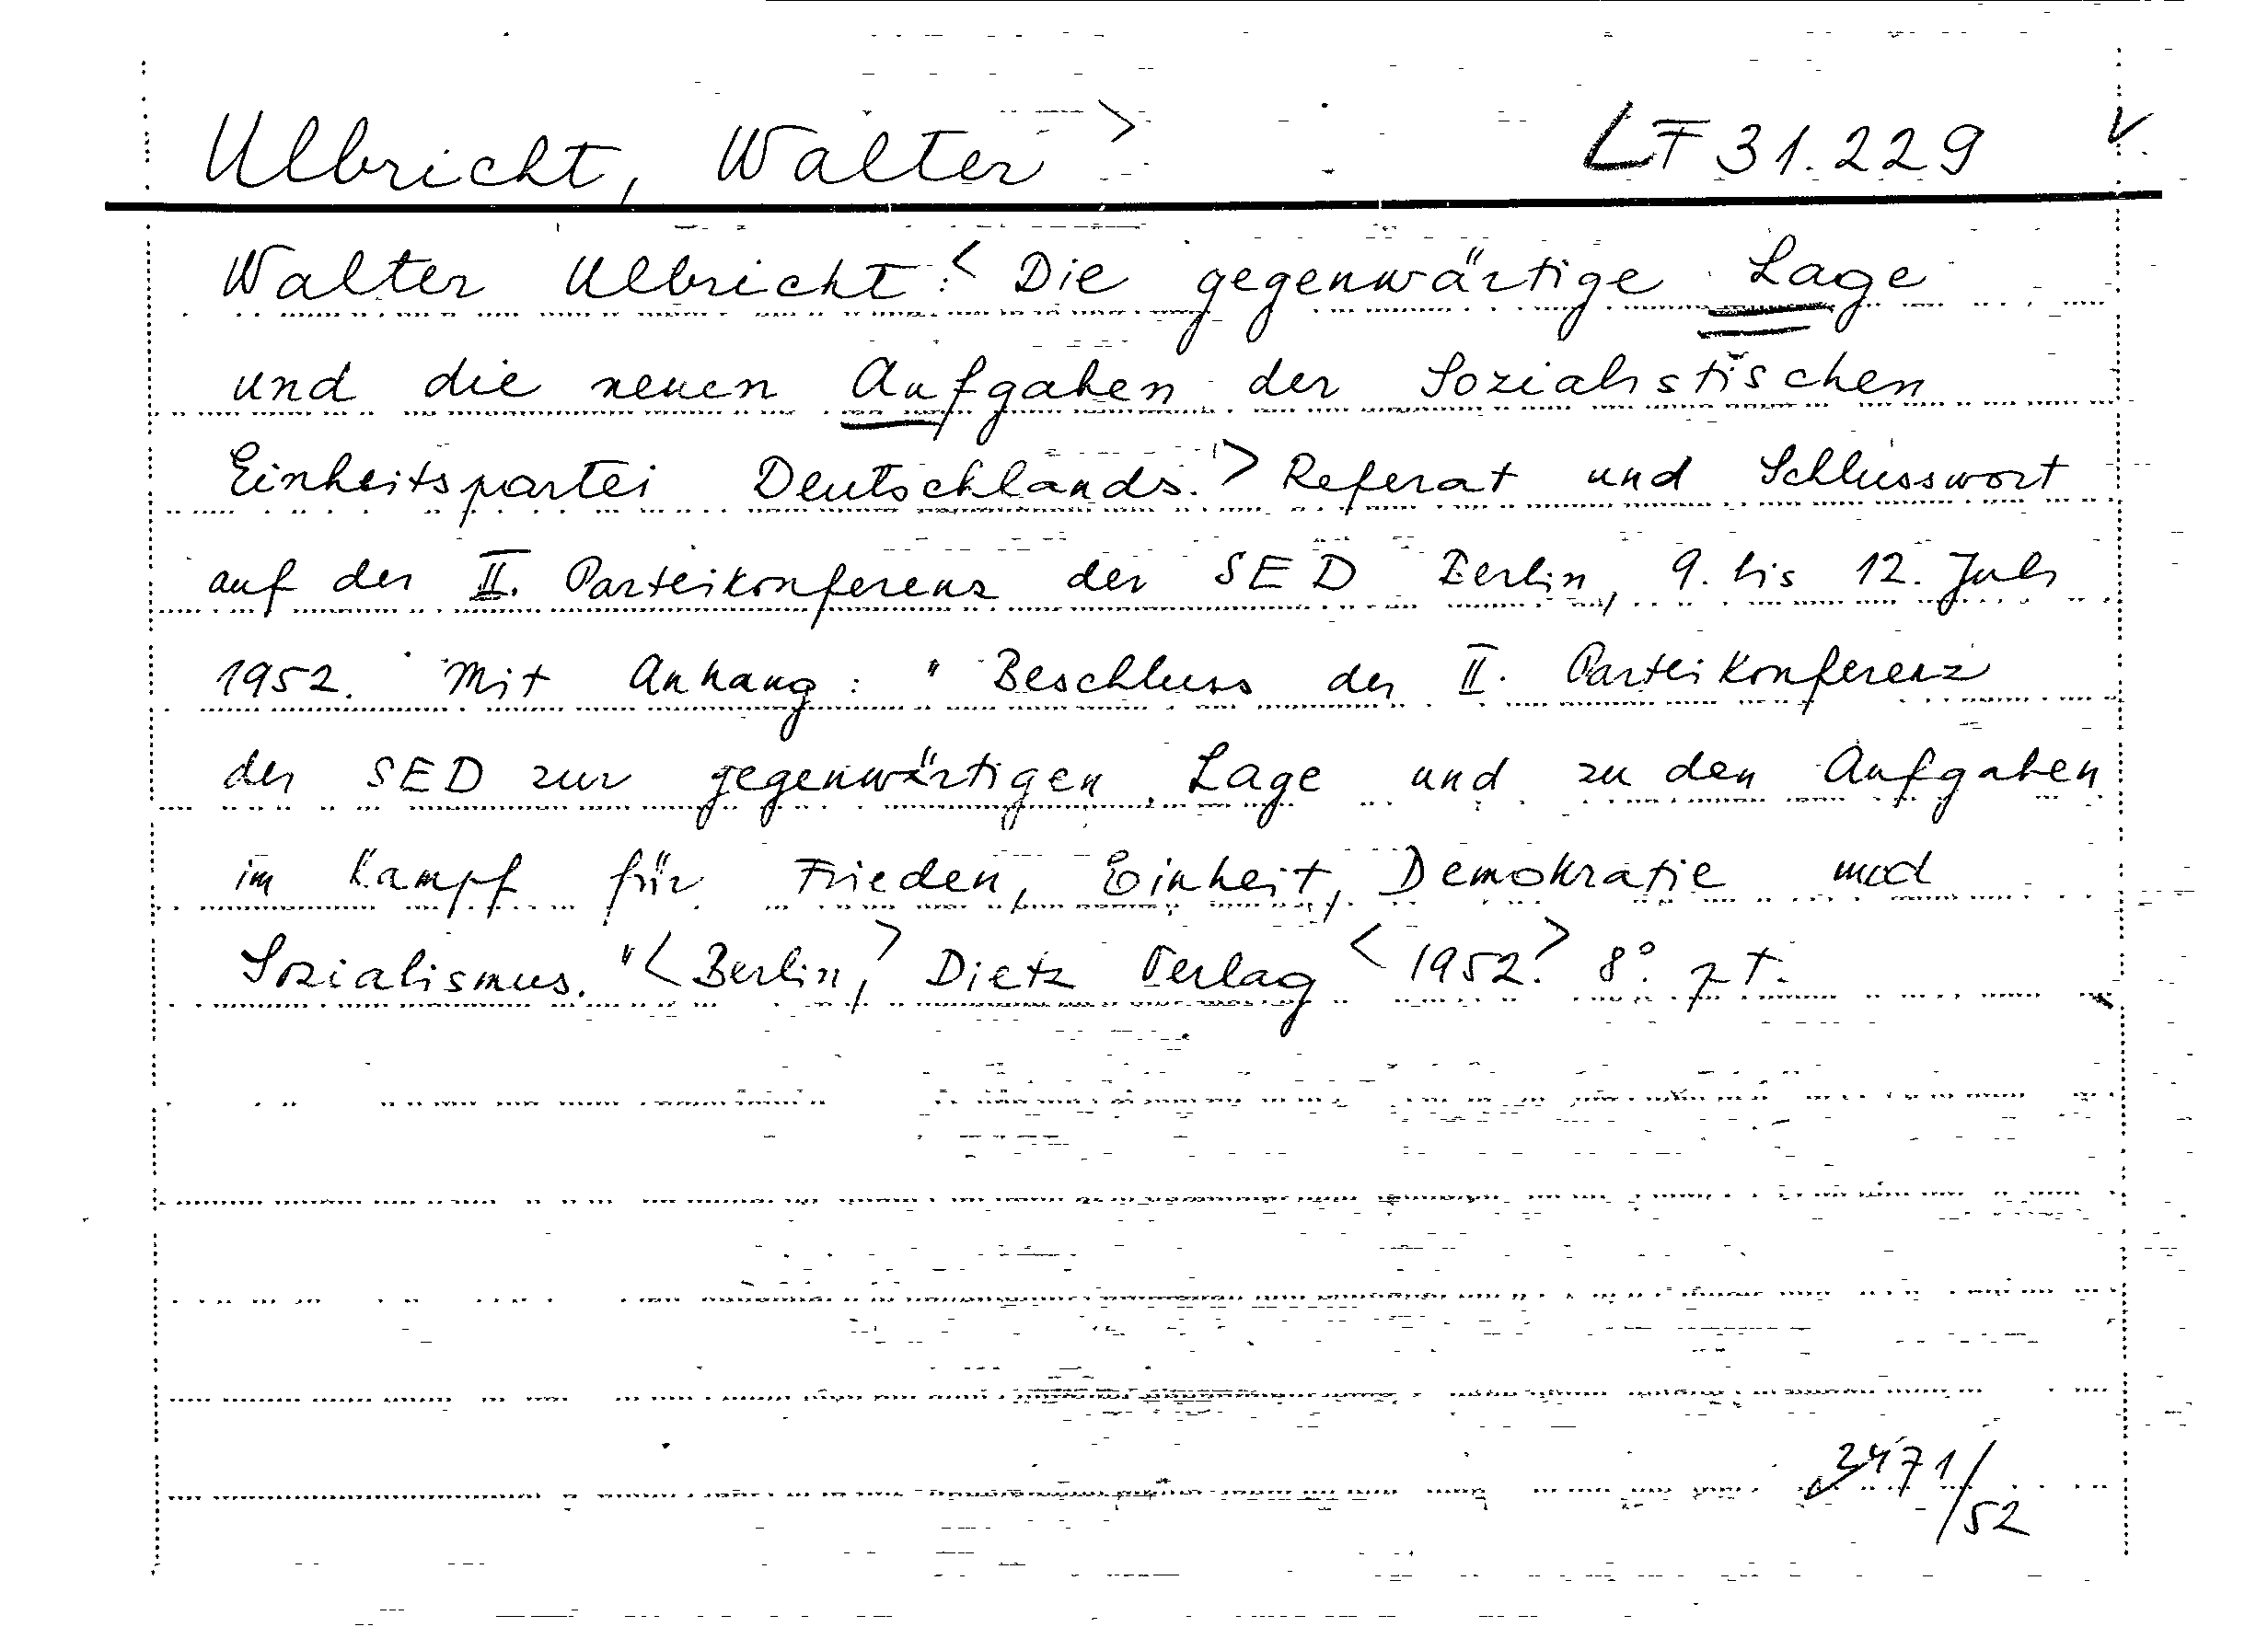 Ulbricht, Walter > LF 31.229 V
Walter Ulbricht: < Die gegenwärtige Lage
und die neuen Aufgaben der Sozialistischen
Einheitspartei Deutschlands. > Referat und Schlusswort
auf der II. Parteikonferenz der SED Berlin, 9. bis 12. Juli
1952. Mit Anhang: " Beschluss der II. Parteikonferenz
der SED zur gegenwärtigen Lage und zu den Aufgaben
im Kampf für Frieden, Einheit, Demokratie und
Sozialismus. " < Berlin, > Dietz Verlag < 1952. > 8°.
2471/52